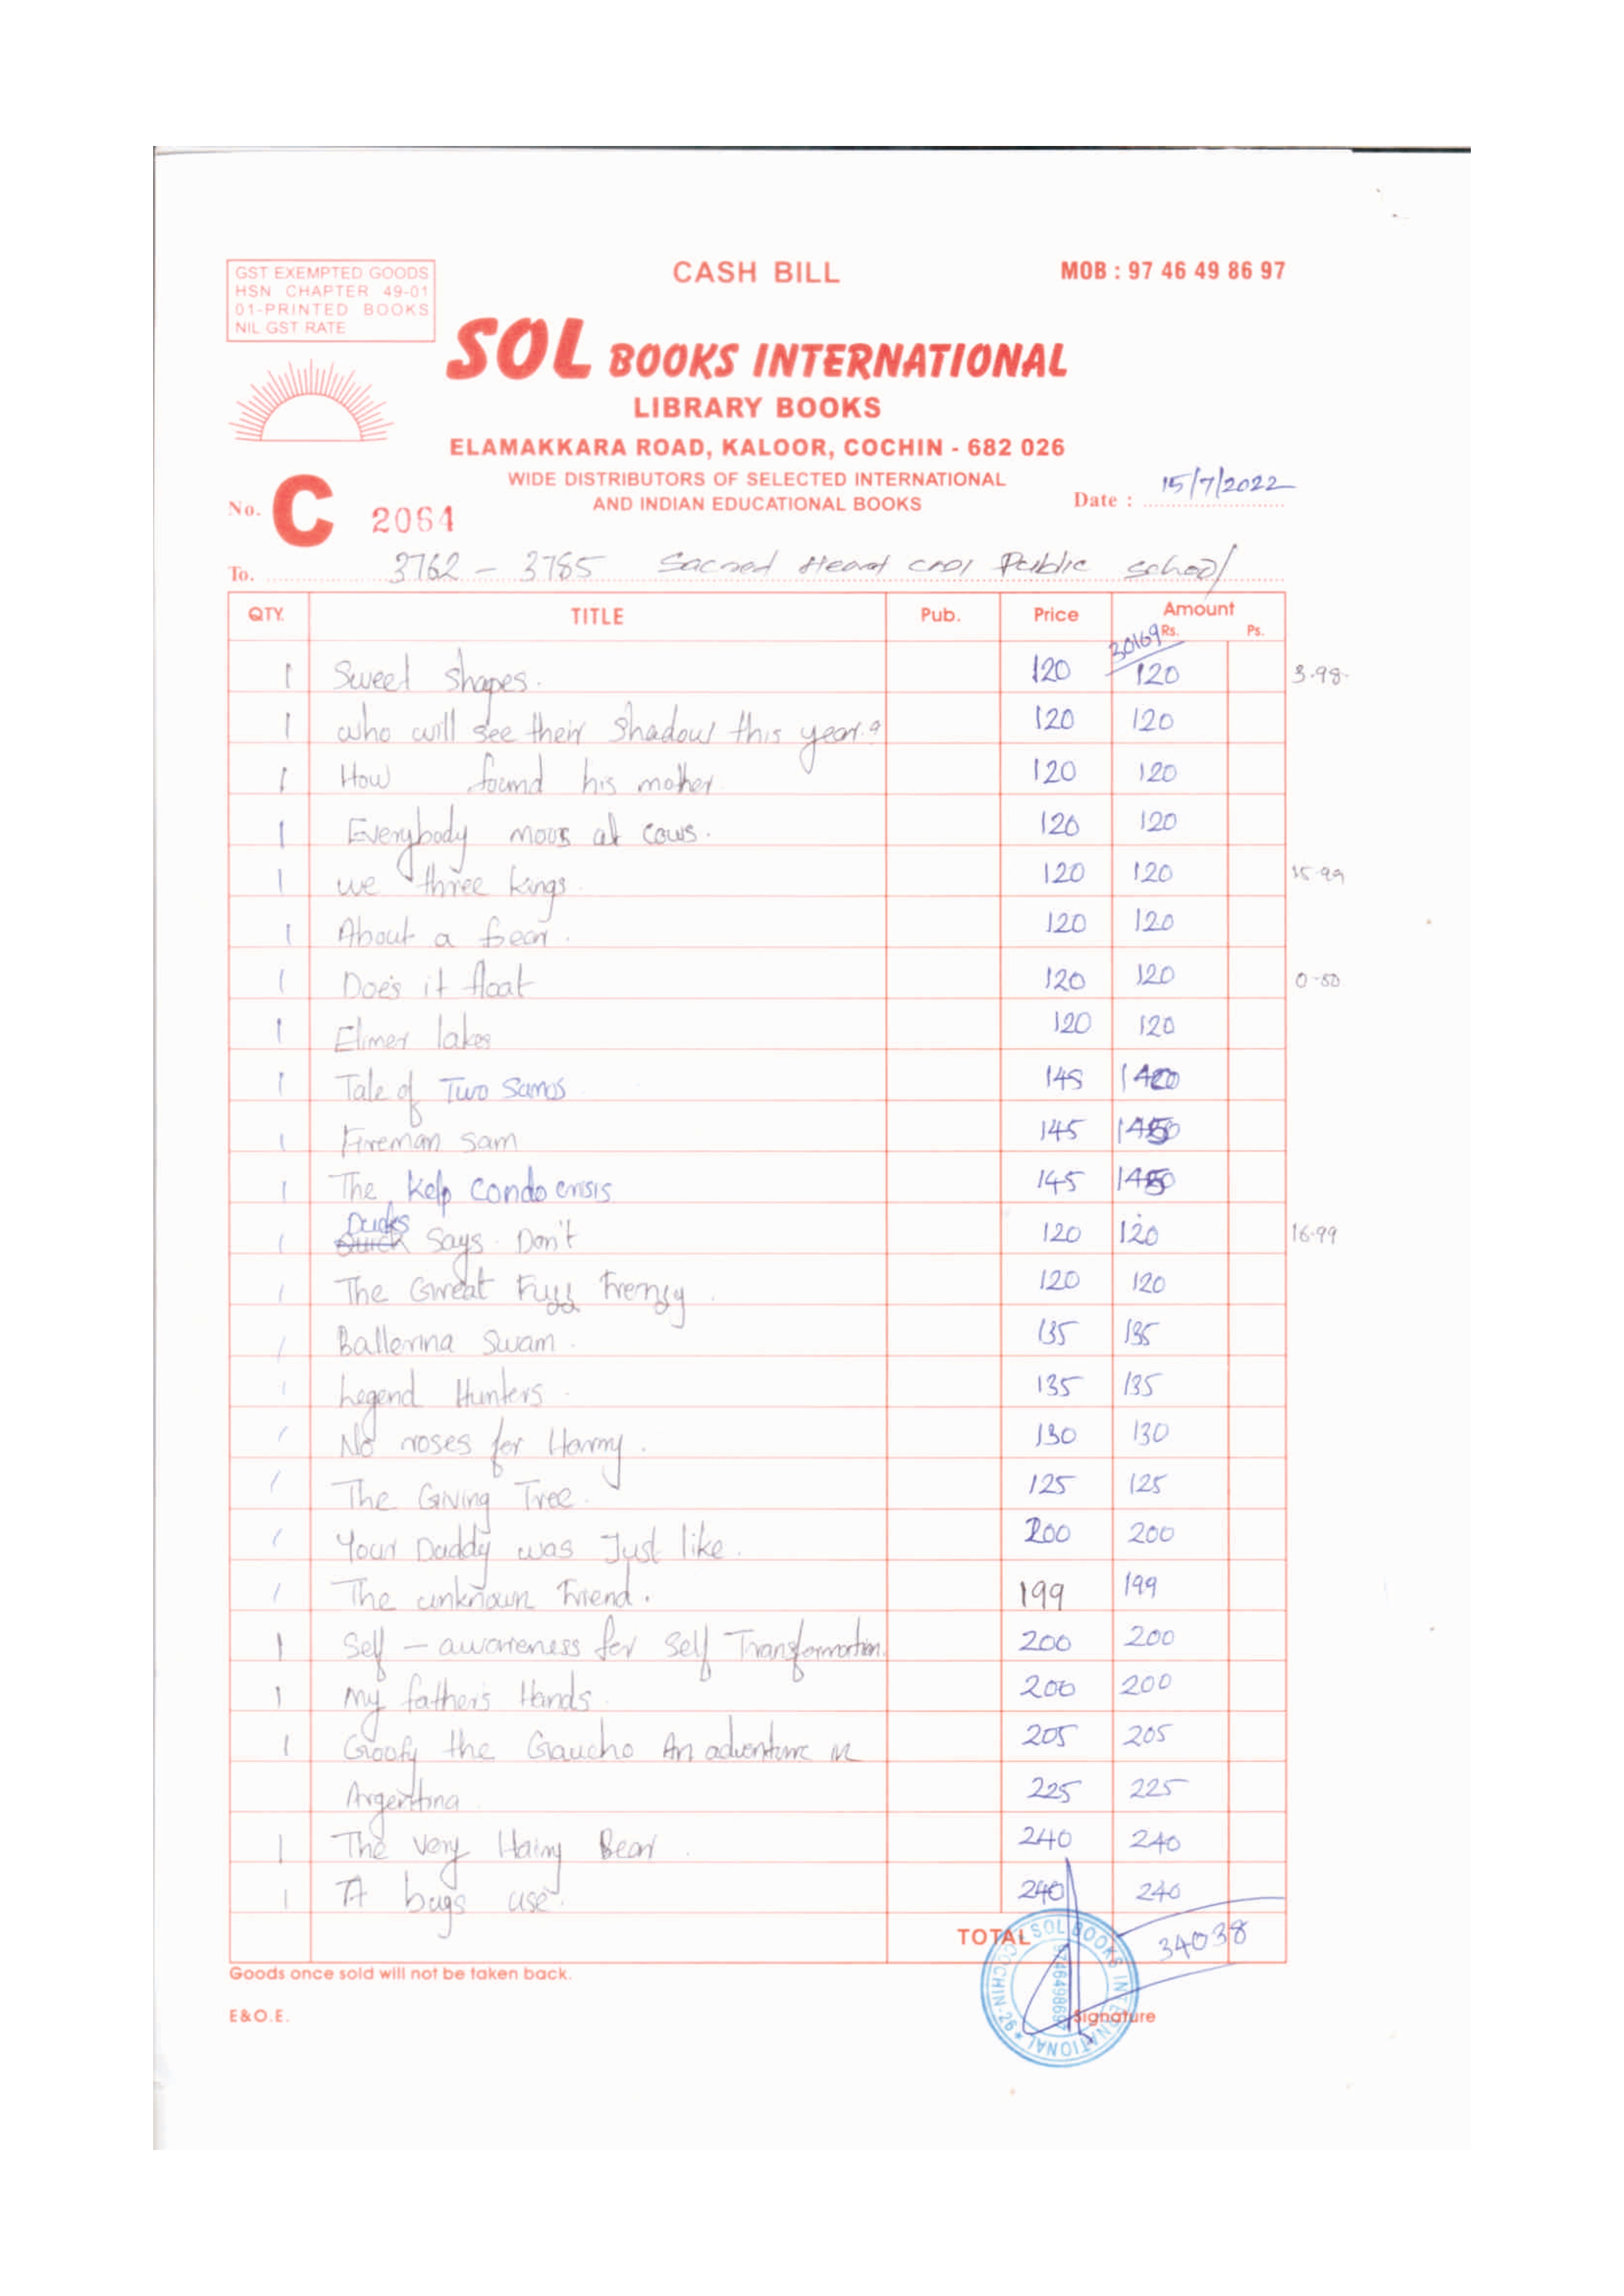 GST EXEMPTED GOODS
HSN CHAPTER 49-01
01-PRINTED BOOKS
NIL GST RATE
CASH BILL
MOB : 97 46 49 86 97
SOL BOOKS INTERNATIONAL
LIBRARY BOOKS
ELAMAKKARA ROAD, KALOOR, COCHIN - 682 026
WIDE DISTRIBUTORS OF SELECTED INTERNATIONAL
AND INDIAN EDUCATIONAL BOOKS
Date : 15/7/2022
No. C 2064
To. 3762 - 3785 Sacred Heart Public school
QTY. TITLE Pub. Price Amount
Rs. Ps.
30169
1 Sweet shapes. 120 120 3.98
1 who will see their shadow this year? 120 120
1 How found his mother 120 120
1 Everybody moos at cows. 120 120
1 we three kings. 120 120 15.99
1 About a bear. 120 120
1 Does it float 120 120 0-50
1 Elmer 120 120
1 Tale of Two Sams 145
1 Fireman Sam 145
1 The Kelp Condo crisis 145
1 Ducks Says Don't 120 120 16.99
1 The Great Fuzz Frenzy. 120 120
1 Ballerina Swam. 135 135
1 Legend Hunters. 135 135
1 No roses for Harry. 130 130
1 The Giving Tree. 125 125
1 Your Daddy was Just like. 200 200
1 The unknown Friend. 199 199
1 Self - awareness for Self Transformation. 200 200
1 My father's Hands. 200 200
1 Goofy the Gaucho An adventure in 205 205
Argentina. 225 225
1 The very Hairy Bear. 240 240
1 A bugs use. 240 240
TOTAL 34038
SOL BOOKS INTERNATIONAL * COCHIN-26
9746498697
Goods once sold will not be taken back.
E&O.E.
Signature